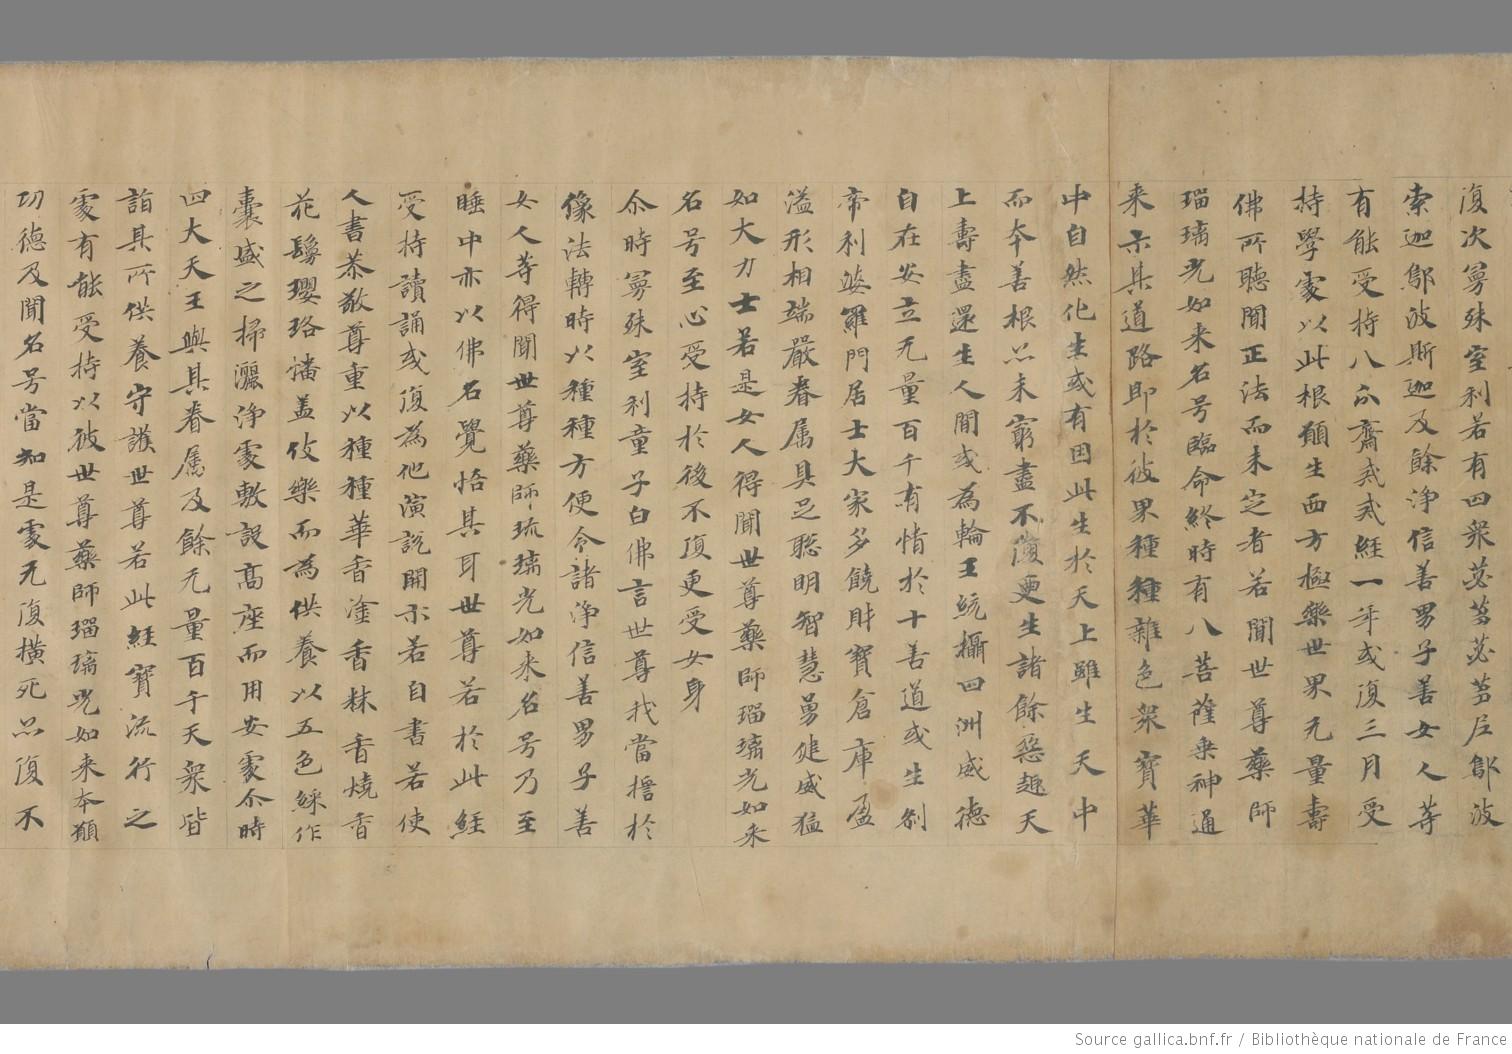 復次曼殊室利若有四衆苾蒭苾蒭尼鄔波
索迦鄔波斯迦及餘淨信善男子善女人等
有能受持八分齋戒或經一年或復三月受
持學處以此根願生西方極樂世界无量壽
佛所聽聞正法而未定者若聞世尊藥師
瑠璃光如来名号臨命終時有八菩薩乗神通
来示其道路即於彼界種種雜色衆寶華
中自然化生或有因此生於天上雖生天中
而夲善根亦未窮盡不復更生諸餘惡趣天
上壽盡還生人間或為輪王統攝四洲威德
自在安立无量百千有情於十善道或生刹
帝利婆羅門居士大家多饒財寶倉庫盈
溢形相端嚴眷属具足聡明智慧勇健威猛
如大力士若是女人得聞世尊藥師瑠璃光如来
名号至心受持於後不復更受女身
尒時曼殊室利童子白佛言世尊我當誓於
像法轉時以種種方便令諸淨信善男子善
女人等得聞世尊藥師琉璃光如来名号乃至
睡中亦以佛名覺悟其耳世尊若於此經
受持讀誦或復為他演說開示若自書若使
人書恭敬尊重以種種華香塗香粖香燒香
花鬘瓔珞幡盖伎樂而為供養以五色綵作
囊盛之掃灑淨處敷設髙座而用安處尒時
四大天王與其眷属及餘无量百千天衆皆
詣其所供養守護世尊若此經寶流行之
處有能受持以彼世尊藥師瑠璃光如来本願
功德及聞名号當知是處无復横死亦復不